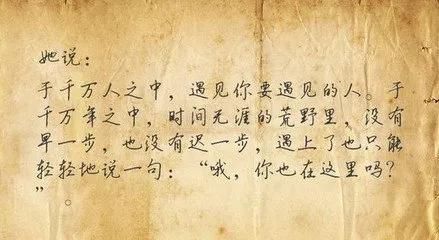 她说：
于千万人之中，遇见你要遇见的人。于
千万年之中，时间无涯的荒野里，没有
早一步，也没有迟一步，遇上了也只能
轻轻地说一句：“哦，你也在这里吗？
”。